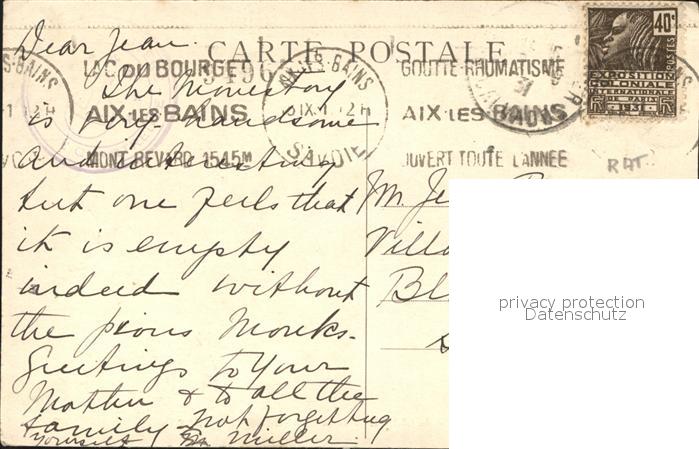 Dear Jean.
CARTE POSTALE
40c
POSTES
EXPOSITION
COLONIALE
INTERNATIONALE
PARIS
1931
LAC DU BOURGET
AIX LES BAINS
MONT REVARD 1545M
AIX-LES-BAINS
SAVOIE
GOUTTE-RHUMATISME
AIX LES BAINS
OUVERT TOUTE L'ANNEE
The Monestory
is very handsome
and interesting
but one feels that
it is empty
indeed without
the pious Monks.
Greetings to your
Mother & to all the
family not forgetting
yourself Miller.
M. Je
Villa
Bl
privacy protection
Datenschutz